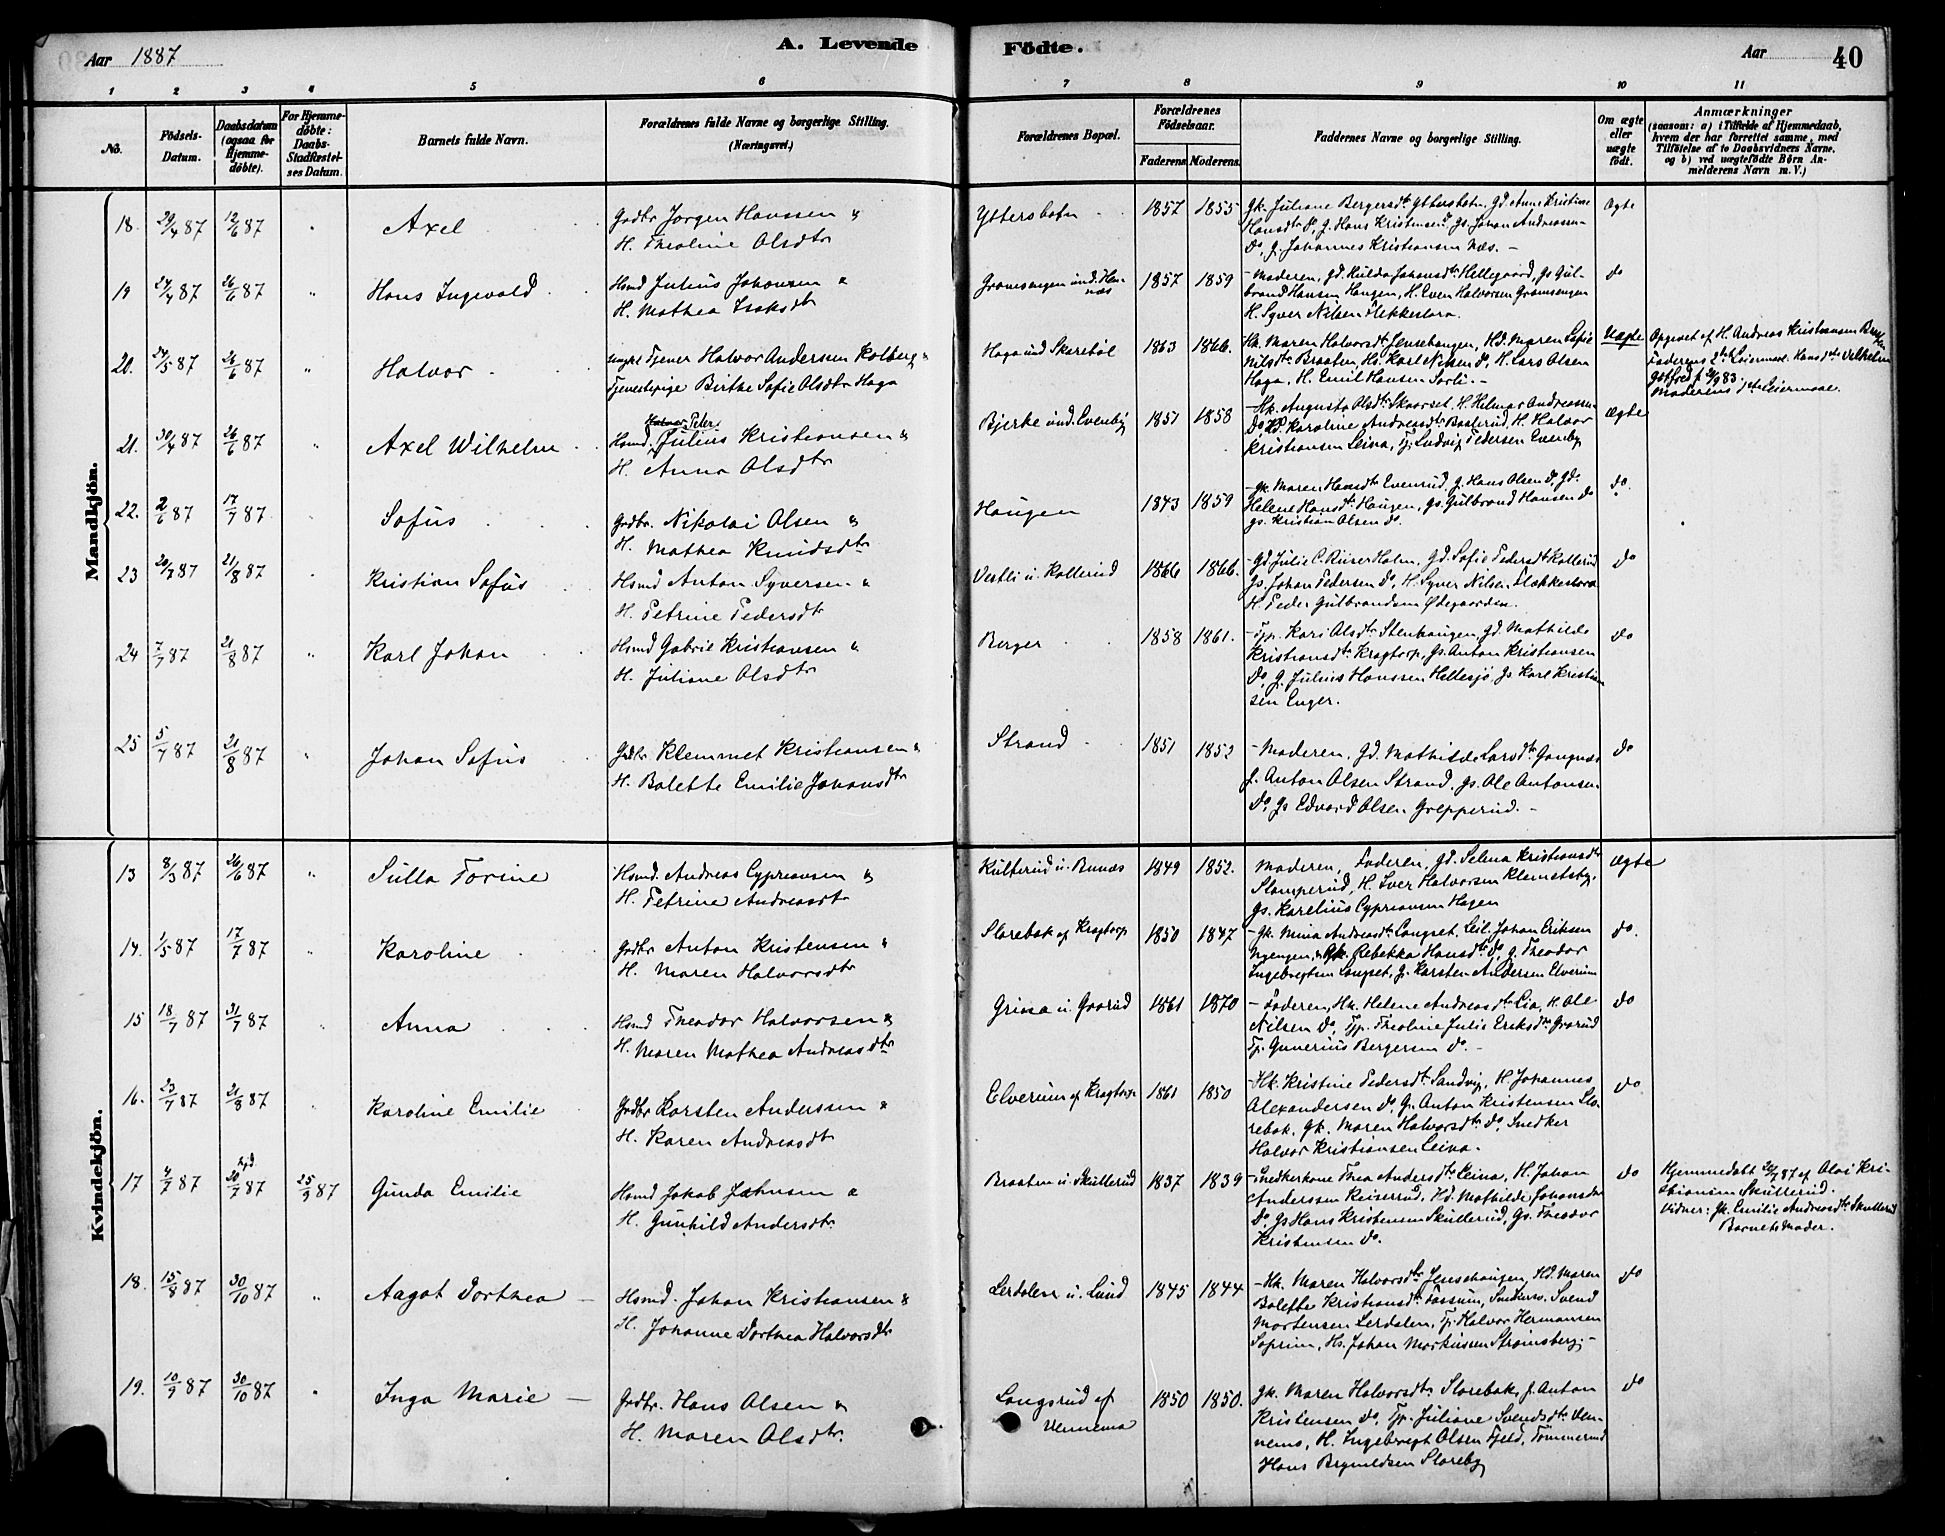 Aar 1887
A. Levende
Födte.
Aar
40
1 2 3 4 5 6 7 8 9 10 11
No.
Födsels-Datum.
Daabsdatum (ogsaa for Hjemme-döbte).
For Hjemme-döbte: Daabs-Stadfæstel-ses Datum.
Barnets fulde Navn.
Forældrenes fulde Navne og borgerlige Stilling. (Næringsvei.)
Forældrenes Bopæl.
Forældrenes Födselsaar.
Faderens. Moderens.
Faddernes Navne og borgerlige Stilling.
Om ægte eller uægte födt.
Anmærkninger
(saasom: a) i Tilfælde af Hjemmedaab, hvem der har forrettet samme, med Tilföielse af to Daabsvidners Navne, og b) ved uægtefödte Börn An-melderens Navn m. V.)
Mandkjön.
18. 29/4 87 12/6 87 " Axel
Grdbr Jörgen Hanssen &
H. Theoline Olsdtr
Yttersbotn 1857 1855
Gk. Juliane Bergersdtr Yttersbotn, Gd. Anne Kristine
Hansdtr Do, G. Hans Kristensen Do, Gs. Johan Andreassen
Do, G. Johannes Kristiansen Næs. -
Ægte
19 24/4 87 26/6 87 " Hans Ingvald
Hsmd Julius Johansen &
H. Mathea Isaksdtr
Gransengen und. Hen-
næs 1857 1859
- Moderen, Gd. Hulda Johansdtr Hellegaard, Gs Gul-
brand Hansen Haugen, H. Even Halvorsen Gransengen
H. Syver Nilsen Flekkestora.
do
20. 24/5 87 26/6 87 " Halvor
ungkl Tjener Halvor Andersen Kolberg &
Tjenestepige Birthe Sofie Olsdtr Haga
Haga und Skeretöl 1863 1866.
Hk. Maren Halvorsdtr Jensehaugen, Hd. Maren Sofie
Nilsdtr Braaten, Hs. Karl Nilsen Do, H. Lars Olsen
Haga, H. Emil Hansen Sorli. -
Uægte
Opgivet af H. Andreas Kristiansen
Faderens 2det Leiermaal. Hans Vilhelm
Gotfred f 83.
Moderens 1ste Leiermaal.
21. 30/4 87 26/6 87 Axel Wilhelm
Halvor Peter
Hsmd. Julius Kristiansen &
H. Anna Olsdtr
Bjerke und. Evenby 1851 1858
- Hk. Augusta Olsdtr Skaarset, H. Helmar Andreassen
Do, Hd. Karoline Andreasdtr Baalerud, H. Halvor
Kristiansen Leina, Tj. Ludvig Pedersen Evenby
Ægte
22. 2/6 87 17/7 87 Sofus
Grdbr. Nikolai Olsen &
H. Mathea Knudsdtr
Haugen 1843 1859
- Gk. Maren Hansdtr Evenrud, G. Hans Olsen Do, Gd.
Helene Hansdtr Haugen, Gs. Gulbrand Hansen Do
Gs. Kristian Olsen Do.
do.
23 20/7 87 21/8 87 Kristian Sofus
Hsmd Anton Syversen &
H. Petrine Pedersdtr
Vestli u. Kollerud 1866 1866.
- Gd. Julie C. Riiser Holm, Gd. Sofie Pedersdtr Kollerud
Gs. Johan Pedersen Do, H. Syver Nilsen Flækkestora
H. Peder Gulbrandsen Ødegaarden.
do
24 7/7 87 21/8 87 " Karl Johan
Hsmd Gabriel Kristiansen &
H. Juliane Olsdtr
Berger 1858 1861.
- Tjp. Kari Olsdtr Stenhaugen, Gd. Mathilde
Kristiansdtr Kragtorp, Gs. Anton Kristiansen
Do, G. Julius Hanssen Hellesjö, Gs Karl Kristian
sen Enger.
do
25 5/7 87 21/8 87 " Johan Sofus
Grdbr Klemmet Kristiansen &
H. Bolette Emilie Johansdtr
Strand 1851 1852
- Moderen, Gd. Mathilde Larsdtr Gangnæs
f. Anton Olsen Strand, Gs. Ole Antonsen
Do, Gs Edvard Olsen Grepperud. -
do
Kvindekjön.
13 8/3 87 26/6 87 " Sulla Torine
Hsmd. Andreas Cypriansen &
H. Petrine Andreasdtr
Kulterud u. Bunæs 1849 1852.
Moderen, Faderen, Gd. Selma Kristiansdtr
Stomperud, H. Iver Halvorsen Klemetsby,
Gs. Karelius Cypriansen Hagen
Ægte
14. 1/5 87 17/7 87 " Karoline
Grdbr Anton Kristensen &
H. Maren Halvorsdtr
Slorebak af Kragtorp 1850 1847
- Gk. Mina Andreasdtr Langset, Leil. Johan Eriksen
Nyengen, & Gk. Rebekka Hansdtr Do, G. Theodor
Ingebregtsen Langset, G. Karsten Andersen Elverum
do.
15 18/7 87 31/7 87 " Anna
Hsmd Theodor Halvorsen &
H. Maren Mathea Andreasdtr
Grina u. Gorud 1861 1870
- Faderen, Hk. Helene Andreasdtr Lia, H. Ole
Nilsen Do, Tjp. Theoline Julie Eriksdtr Gorud
Tj. Gunerius Bergersen Do. -
do
16. 23/7 87 21/8 87 Karoline Emilie
Grdbr Karsten Anderssen &
H. Karen Andreasdtr
Elverum af Kragtorp 1861 1850
- Hk. Kristine Pedersdtr Sandvig, H. Johannes
Alexandersen Do, G. Anton Kristensen Slo-
rebak, Gk. Maren Halvorsdtr Do, Snedker
Halvor Kristiansen Leina.
do
17 4/7 87 20/7 87 25/9 87 Gunda Emilie
Hsmd Jakob Johnsen &
H. Gunhild Andersdtr
Braaten u. Skullerud 1837 1839
- Snedkerkone Thea Andersdtr Leina, H. Johan
Anderssen Reiserud, Hd. Mathilde Johansdtr
Do, Gs Hans Kristensen Skullerud, Gs. Theodor
Kristensen Do.
do
Hjemmedöbt 20/7 87 af Olai Kri-
stiansen Skullerud.
Vidner: Gk. Emilie Andreasdtr Skullerud
Barnets Moder.
18. 15/8 87 30/10 87 " Aagot Dorthea -
Hsmd. Johan Kristiansen &
H. Johanne Dorthea Halvorsdtr
Lerdalen u. Lund 1845 1844
- Hk. Maren Halvorsdtr Jensehaugen, Hd. Maren
Bolette Kristiansdtr Fossum, Svend
Mortensen Lerdalen, Tj. Halvor Hermansen
Soprim, Hs. Johan Markussen Strömsberg. -
do
19. 10/9 87 30/10 87 " Inga Marie -
Grdbr. Hans Olsen &
H. Maren Olsdtr.
Langsrud af
Vennema 1850 1850.
Gk. Maren Halvorsdtr Slorebak, f. Anton
Kristensen Do, Tjp. Juliane Svendsdtr Ven-
nemo, H. Ingebregt Olsen Fjeld, Tömmermd
Hans Brynildsen Sloreby
do